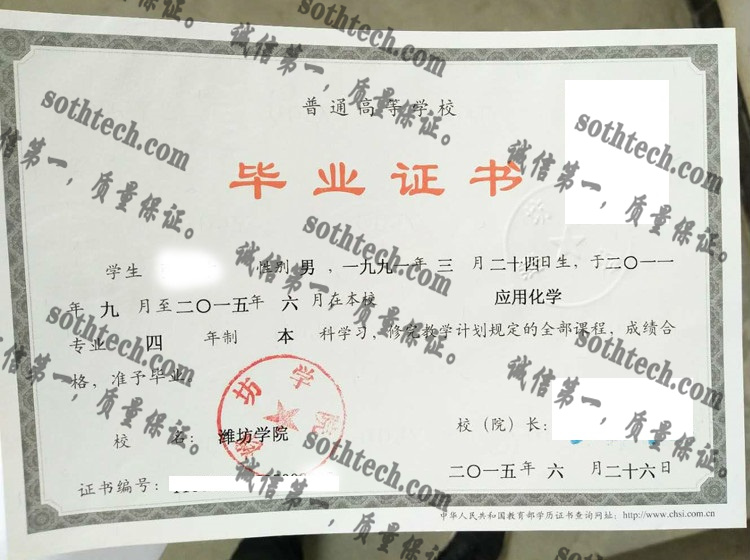 普通高等学校
毕业证书
学生 性别 男 ,一九九一年 三 月 二十四日生，于二〇一一
年 九 月至二〇一五年 六 月在本校 应用化学
专业 四 年制 本 科学习，修完教学计划规定的全部课程，成绩合
格，准予毕业。
校 名： 潍坊学院
校（院）长：
二〇一五年 六 月二十六日
证书编号：
中华人民共和国教育部学历证书查询网址：http://www.chsi.com.cn
潍坊学院
sothtech.com
诚信第一，质量保证。
sothtech.com
诚信第一，质量保证。
sothtech.com
诚信第一，质量保证。
sothtech.com
诚信第一，质量保证。
sothtech.com
诚信第一，质量保证。
sothtech.com
诚信第一，质量保证。
sothtech.com
诚信第一，质量保证。
sothtech.com
诚信第一，质量保证。